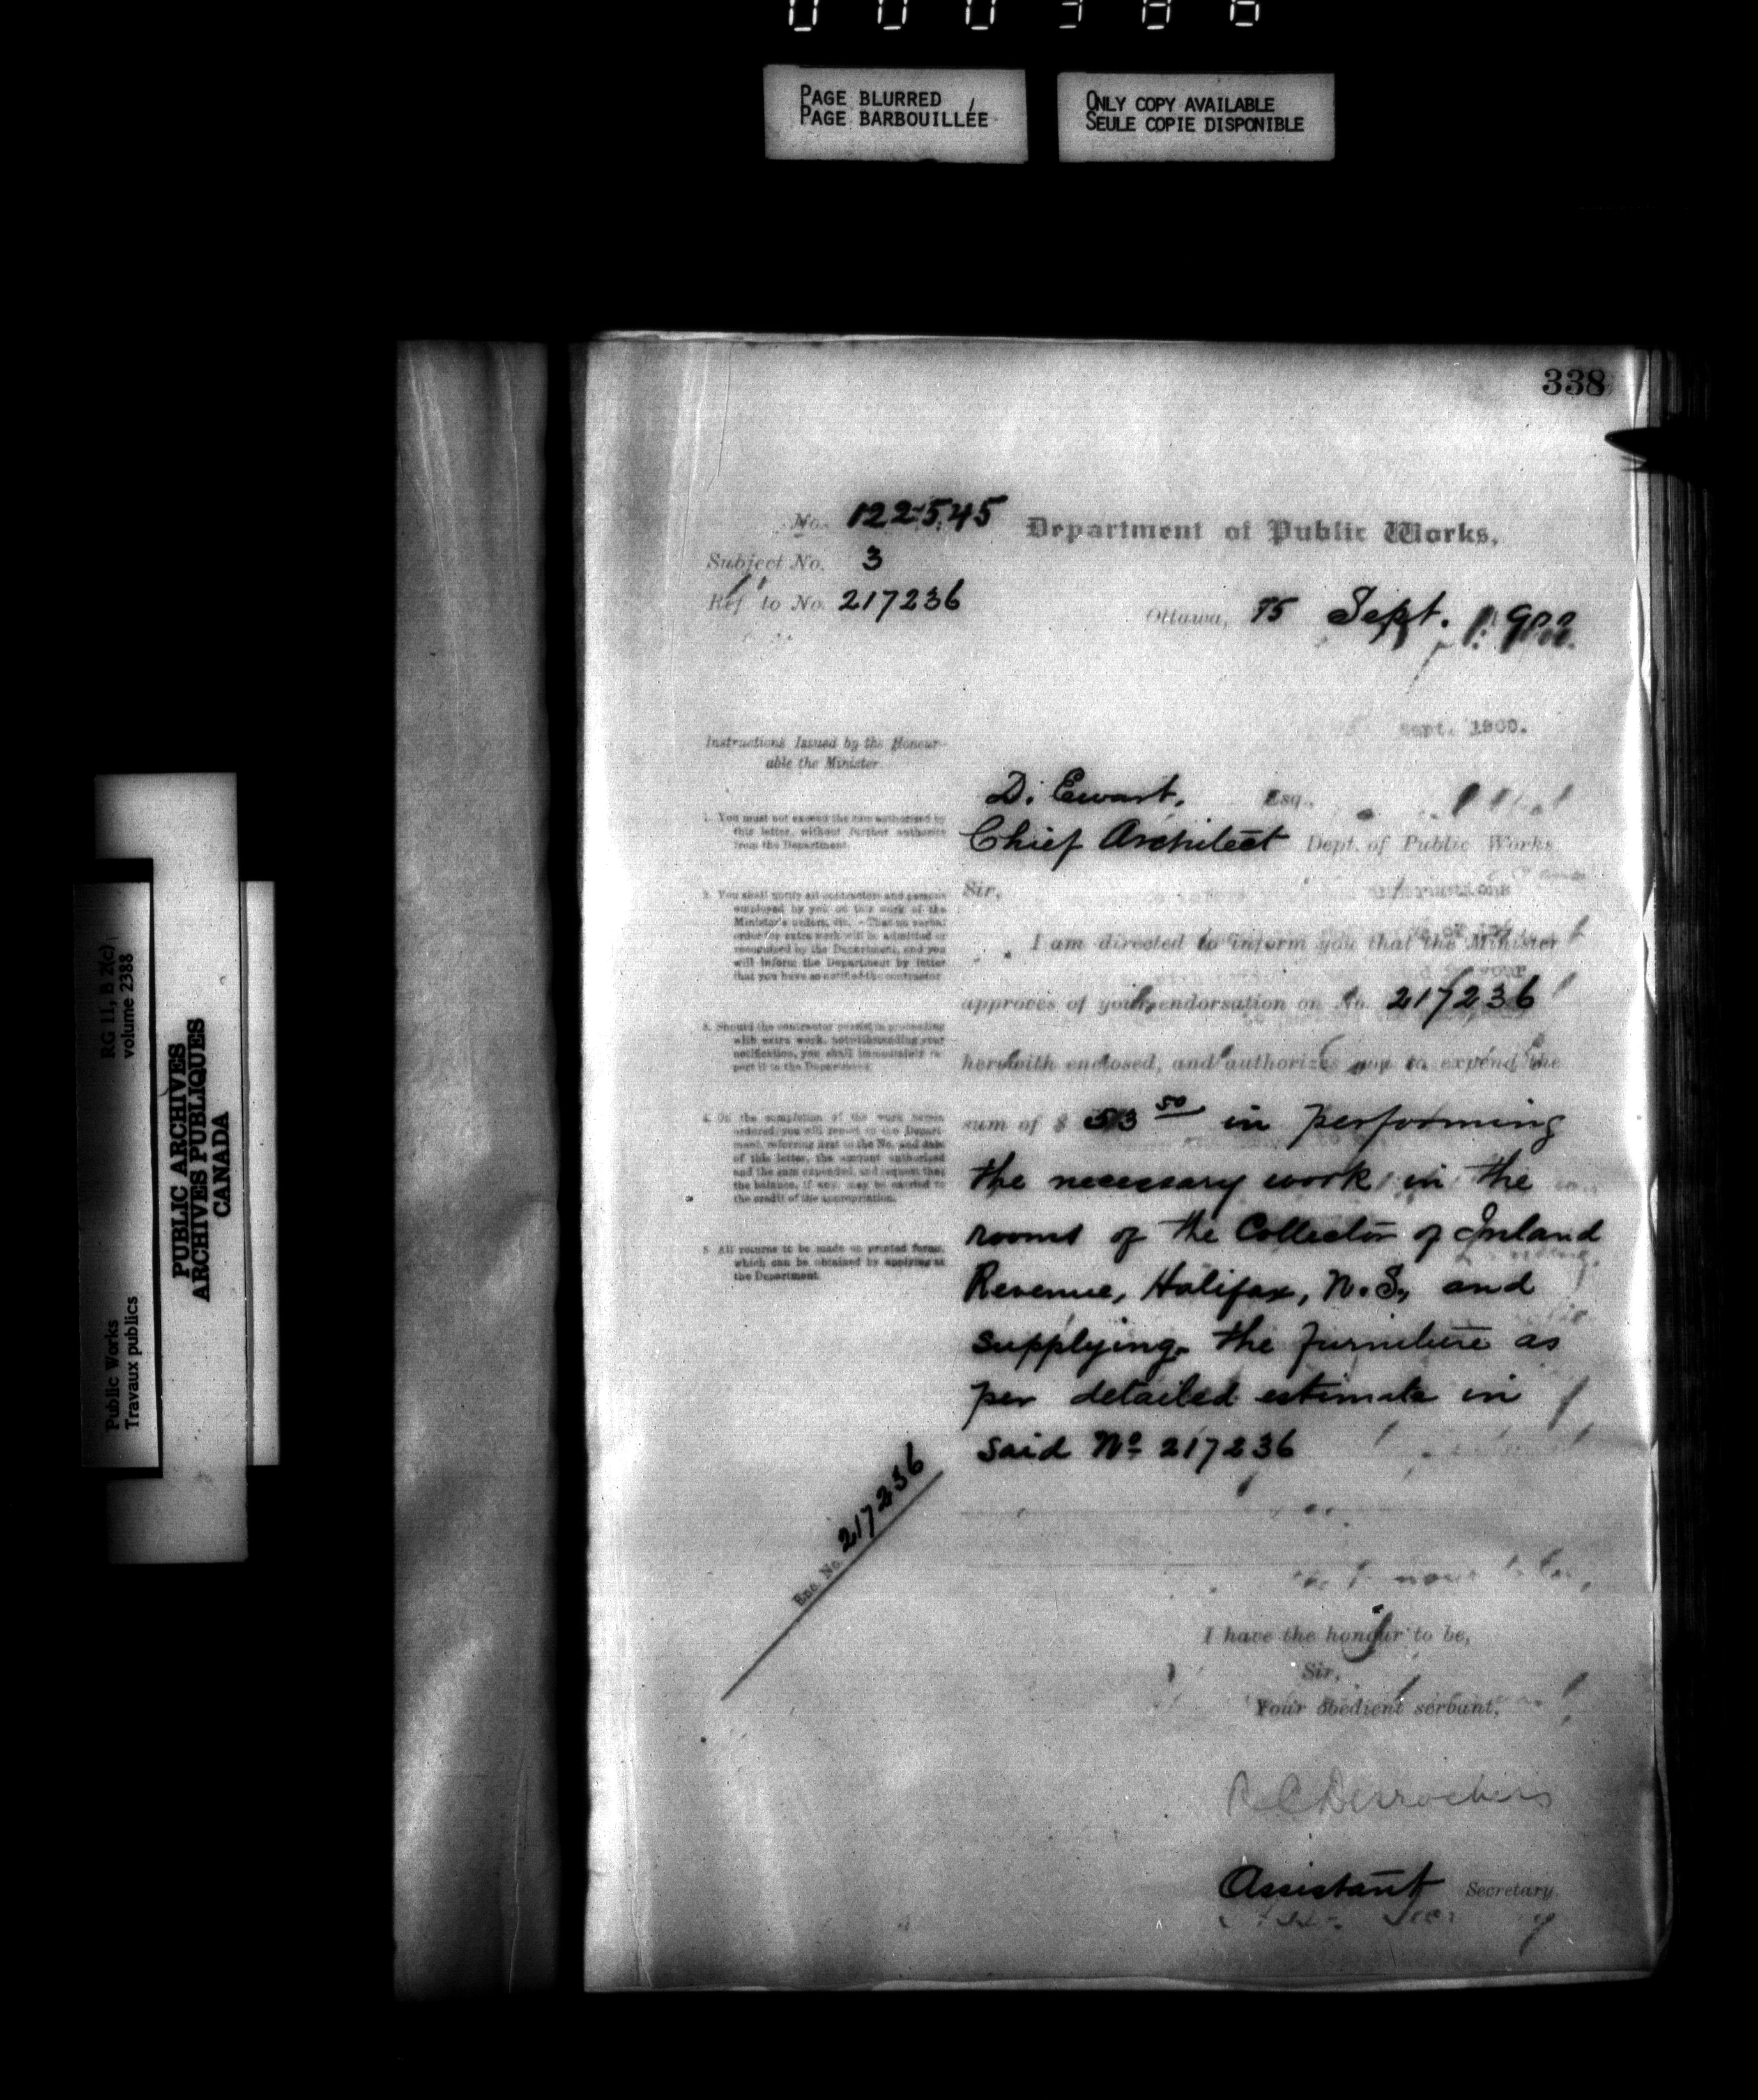 PAGE BLURRED
PAGE BARBOUILLÉE
ONLY COPY AVAILABLE
SEULE COPIE DISPONIBLE
338
No. 122545
Department of Public Works,
Subject No. 3
Ref. to No. 217236
Ottawa, Sept. 1900.
Sept. 1900.
Instructions Issued by the Honour-
able the Minister.
1. You must not exceed the sum authorized by
this letter, without further authority
from the Department.
2. You shall notify all contractors and persons
employed by you on this work of the
Minister's orders, viz.—That no verbal
order for extra work will be admitted or
recognised by the Department, and you
will inform the Department by letter
that you have so notified the contractor.
3. Should the contractor persist in proceeding
with extra work, notwithstanding your
notification, you shall immediately re-
port it to the Department.
4. On the completion of the work herein
ordered, you will report to the Depart-
ment, referring first to the No. and date
of this letter, the amount authorized
and the sum expended, and request that
the balance, if any, may be carried to
the credit of the appropriation.
5. All returns to be made on printed forms,
which can be obtained by applying at
the Department.
D. Ewart, Esq.,
Chief Architect Dept. of Public Works
Sir,
I am directed to inform you that the Minister
approves of your endorsation on No. 217236
herewith enclosed, and authorizes you to expend the
sum of $ 50 in performing
the necessary work in the
rooms of the Collector of Inland
Revenue, Halifax, N.S., and
supplying the furniture as
per detailed estimate in
said No 217236
Enc. No. 217236
I have the honour to be,
Sir,
Your obedient servant,
R C Desrochers
Assistant Secretary
RG 11, B 2(c)
volume 2388
PUBLIC ARCHIVES
ARCHIVES PUBLIQUES
CANADA
Public Works
Travaux publics